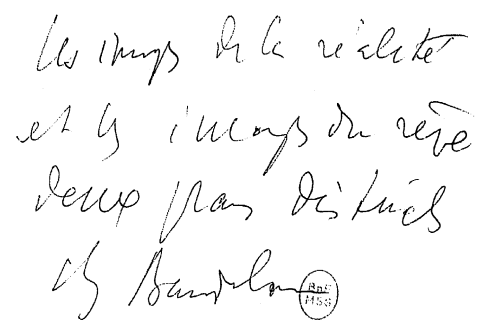 les images de la réalité
et les images du rêve
deux plans distincts
chez Baudelaire
BnF
MSS